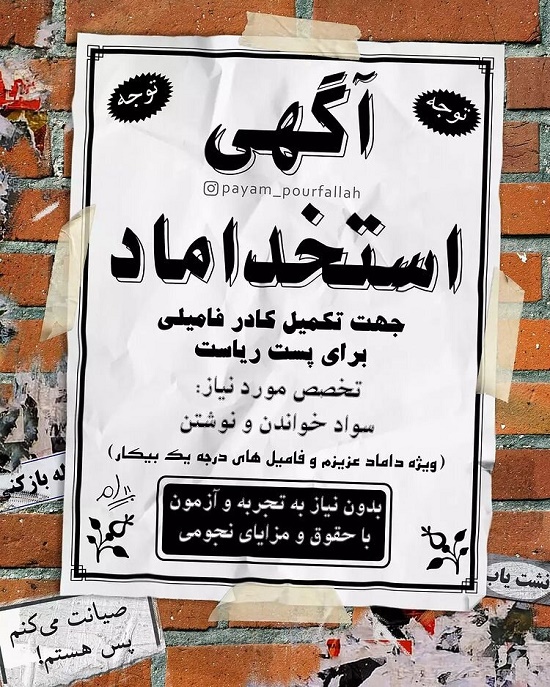 توجه
توجه
آگهی
payam_pourfallah
استخداماد
جهت تکمیل کادر فامیلی
برای پست ریاست
تخصص مورد نیاز:
سواد خواندن و نوشتن
(ویژه داماد عزیزم و فامیل های درجه یک بیکار)
بدون نیاز به تجربه و آزمون
با حقوق و مزایای نجومی
له باز کنی
نشت یاب
صیانت می‌کنم
پس هستم!